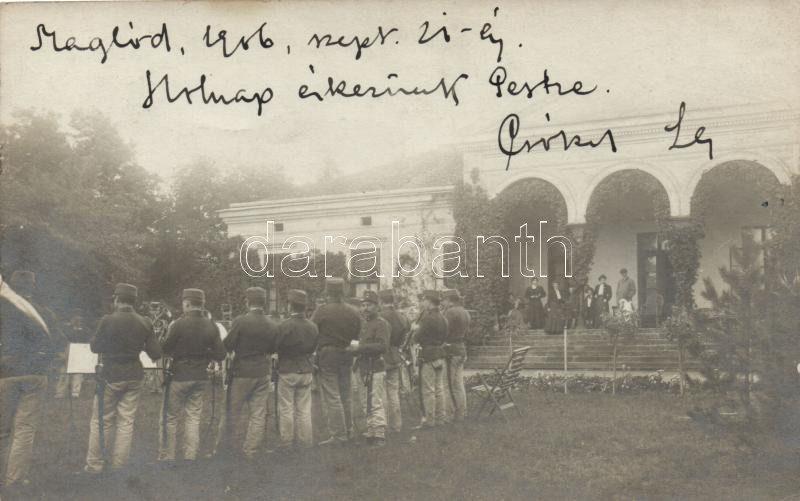 Maglód, 1906, sept. 21-én.
Holnap érkezünk Pestre.
Csókol
darabanth